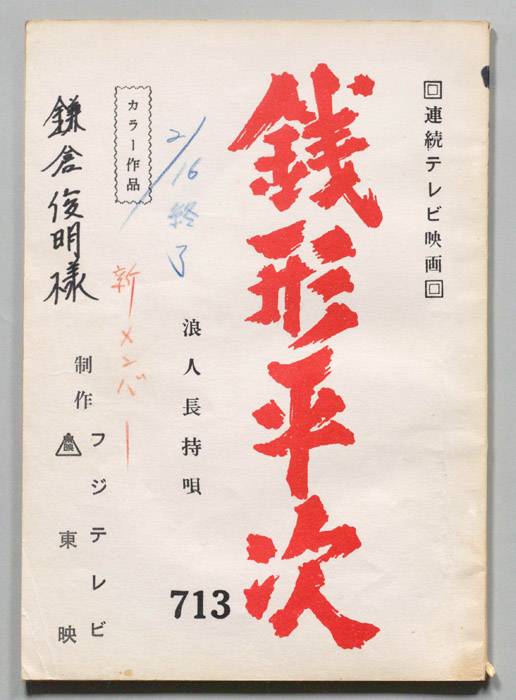 連続テレビ映画
銭形平次
浪人長持唄
713
2/16終了
新メンバー
カラー作品
鎌倉俊明様
制作
フジテレビ
東映